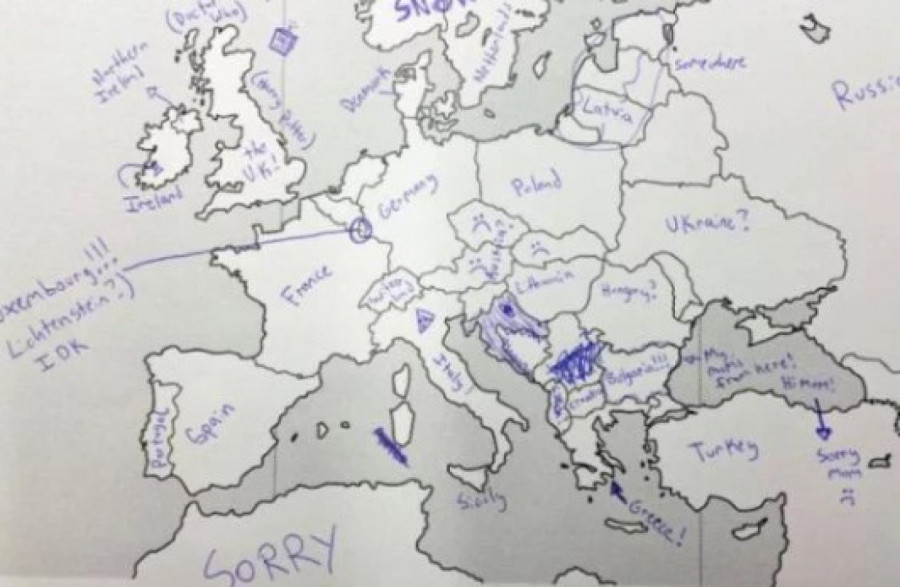 (Doctor
Who)
SNOW
Netherlands
Northern
Ireland
Denmark
somewhere
Russia
(Harry Potter)
Latvia
the
UK!
Ireland
Germany
Poland
Ukraine?
Luxembourg!!!
Lichtenstein?)
IDK
France
Switzer
land
Austria?
Lithuania
Hungary?
Italy!
Bulgaria!!!
Croatia
My
mom's
from here!
Hi Mom!
Portugal
Spain
Turkey
Sorry
mom
:(
Sicily
Greece!
SORRY